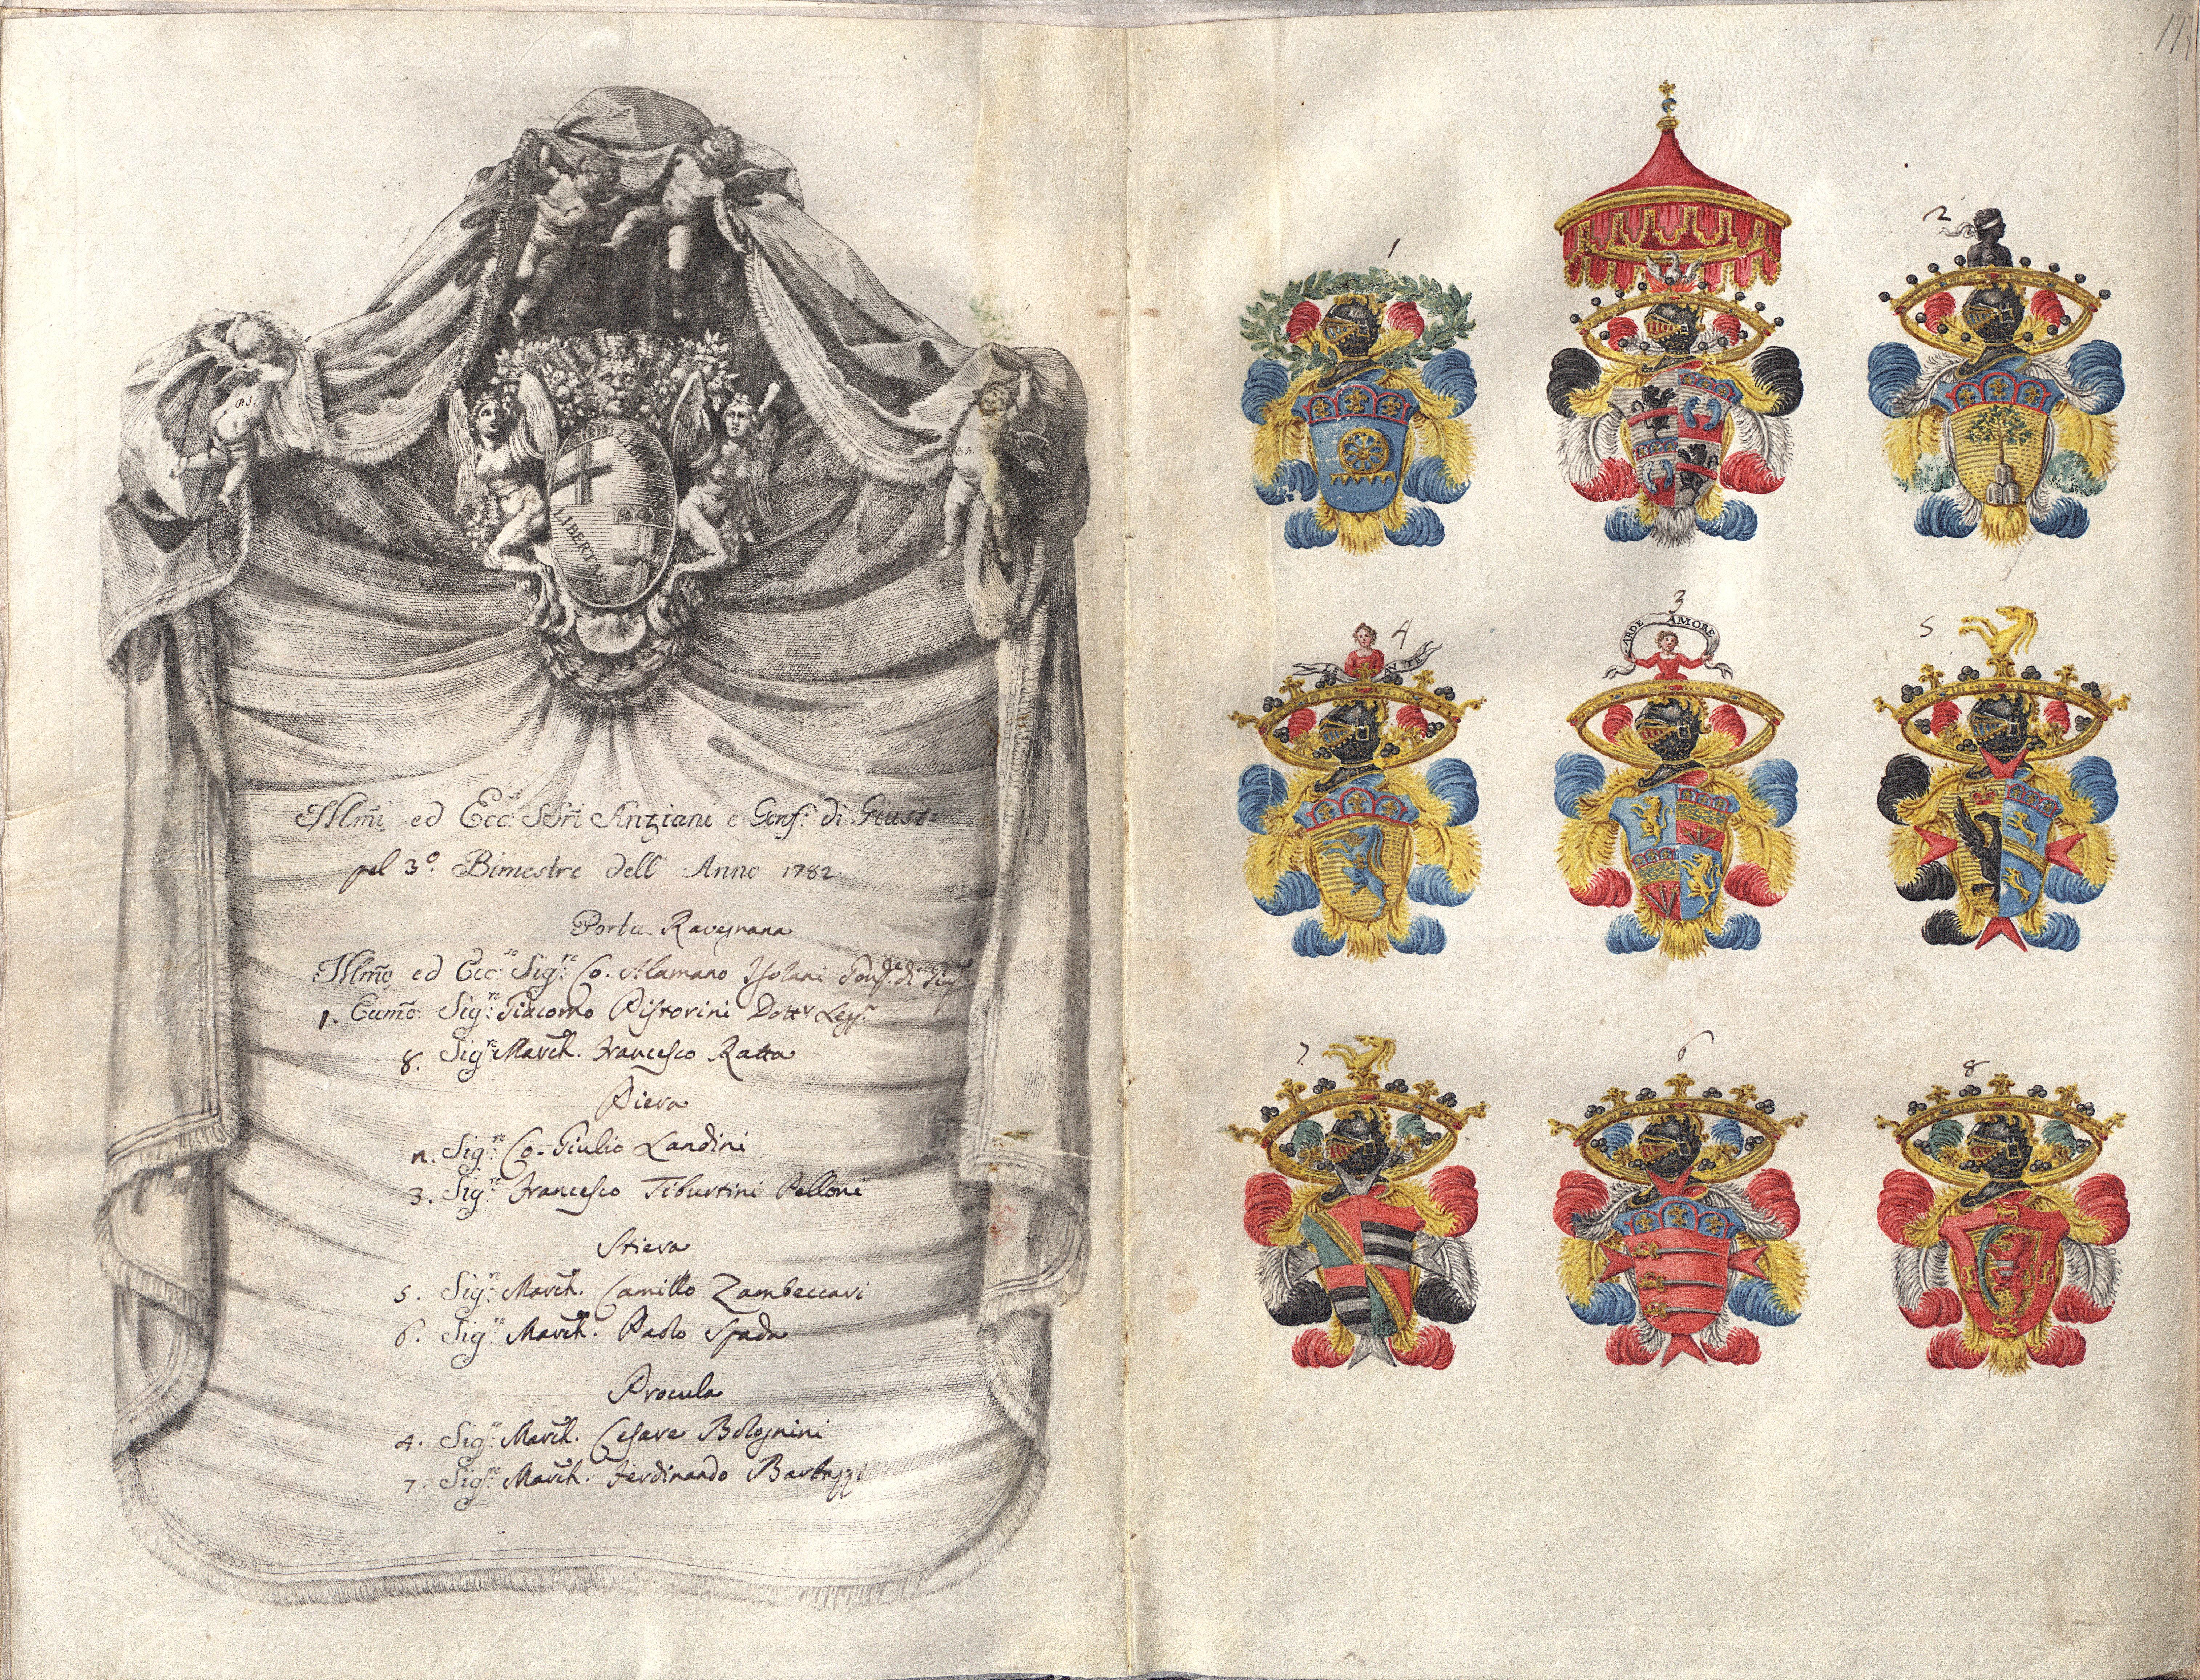 LIBERTAS
LIBERTAS
P.S.
A.A.
Illm̃i ed Ecc.si SSri Anziani e Gonf.e di Giust.
pel 3.o Bimestre dell' Anno 1782.
Porta Ravegnana
Illm̃o ed Ecc.so Sig.re Co. Alamano Isolani Gonf.e di Giust.
1. Eccmõ. Sig.re Giacomo Pistorini Dott.r Legg.
8. Sig.re March. Francesco Ratta
Piera
2. Sig.re Co. Giulio Landini
3. Sig.re Francesco Tiburtini Pelloni
Stiera
5. Sig.re March. Camillo Zambeccari
6. Sig.re March. Paolo Spada
Procula
4. Sig.re March. Cesare Bolognini
7. Sig.re March. Ferdinando Barbazzi
177
1
2
4
LE
TE
3
ARDE AMORE
5
7
6
8